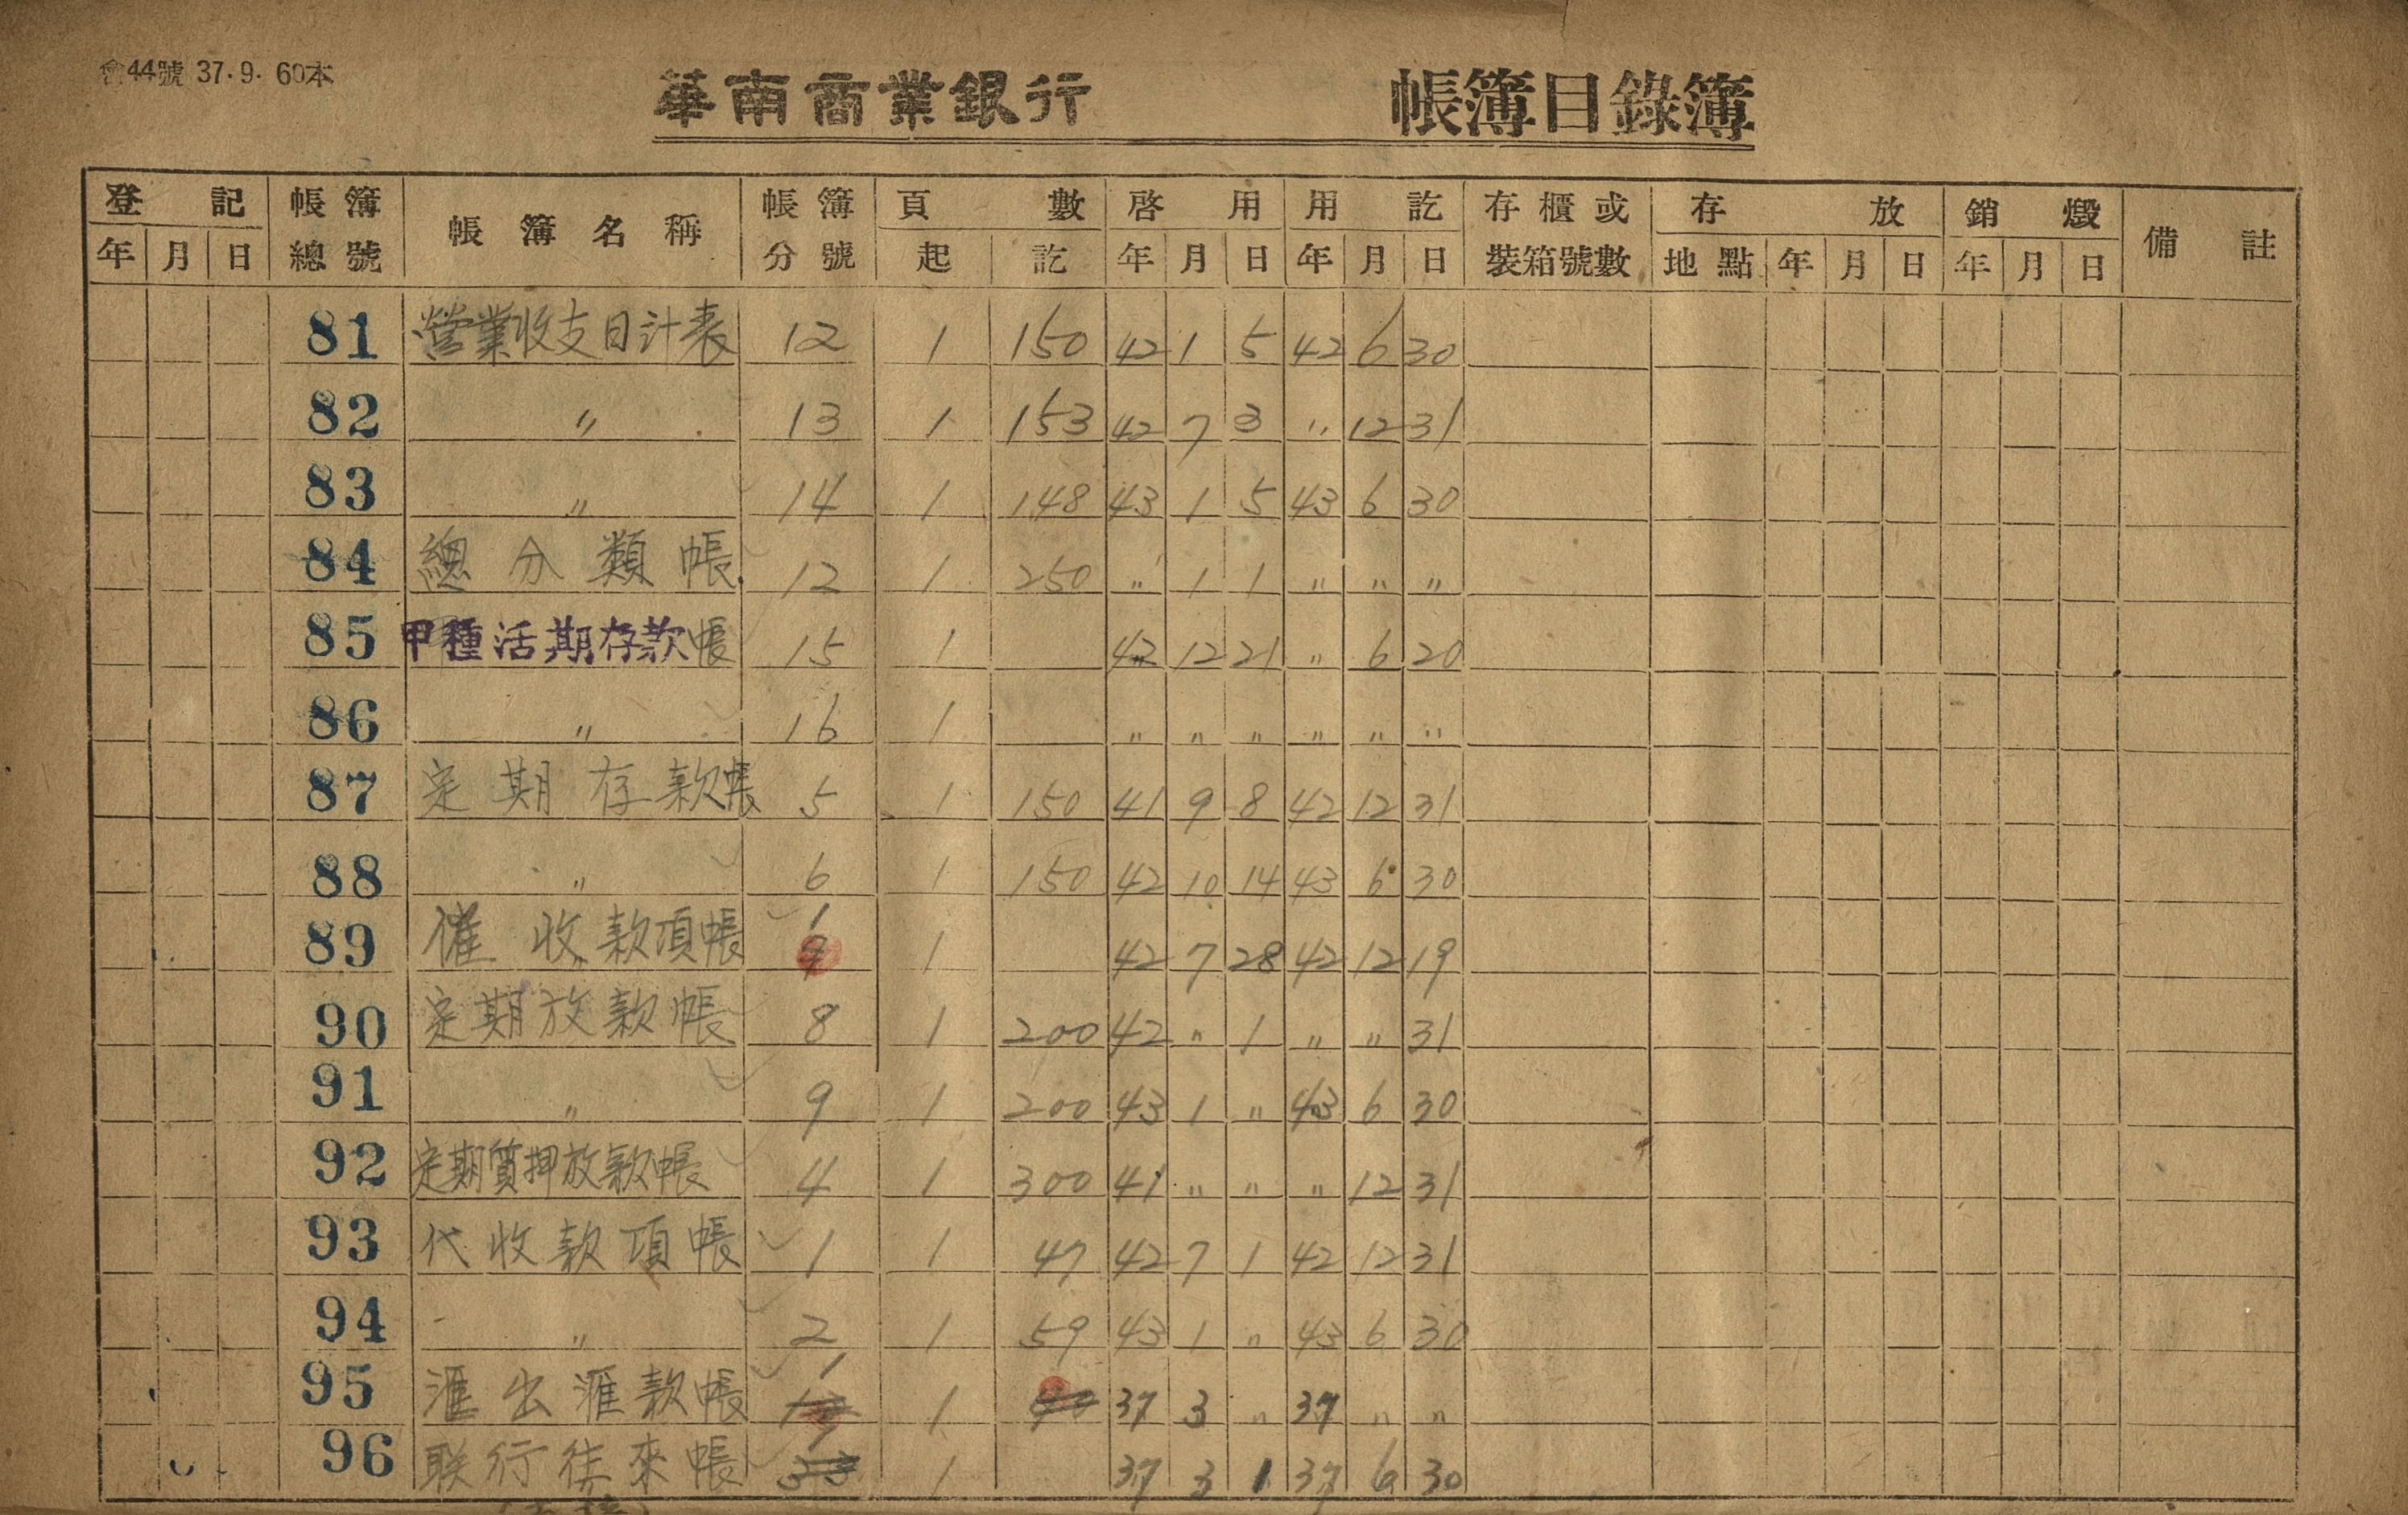 會44號 37.9. 60本
華南商業銀行 帳簿目錄簿
登記 帳簿總號 帳簿名稱 帳簿分號 頁數 啓用 用訖 存櫃或裝箱號數 存放 銷燬 備註
年 月 日 起 訖 年 月 日 年 月 日 地點 年 月 日 年 月 日
81 營業收支日計表 12 1 150 42 1 5 42 6 30
82 〃 13 1 153 42 7 3 〃 12 31
83 〃 14 1 148 43 1 5 43 6 30
84 總分類帳 12 1 250 〃 1 1 〃 〃 〃
85 甲種活期存款帳 15 1 42 12 21 〃 6 20
86 〃 16 1 〃 〃 〃 〃 〃 〃
87 定期存款帳 5 1 150 41 9 8 42 12 31
88 〃 6 1 150 42 10 14 43 6 30
89 催收款項帳 1 1 42 7 28 42 12 19
90 定期放款帳 8 1 200 42 〃 1 〃 〃 31
91 〃 9 1 200 43 1 〃 43 6 30
92 定期質押放款帳 4 1 300 41 〃 〃 〃 12 31
93 代收款項帳 1 1 47 42 7 1 42 12 31
94 〃 2 1 59 43 1 〃 43 6 30
95 滙出滙款帳 1 1 37 3 〃 37 〃 〃
96 联行往來帳 1 37 3 1 37 6 30